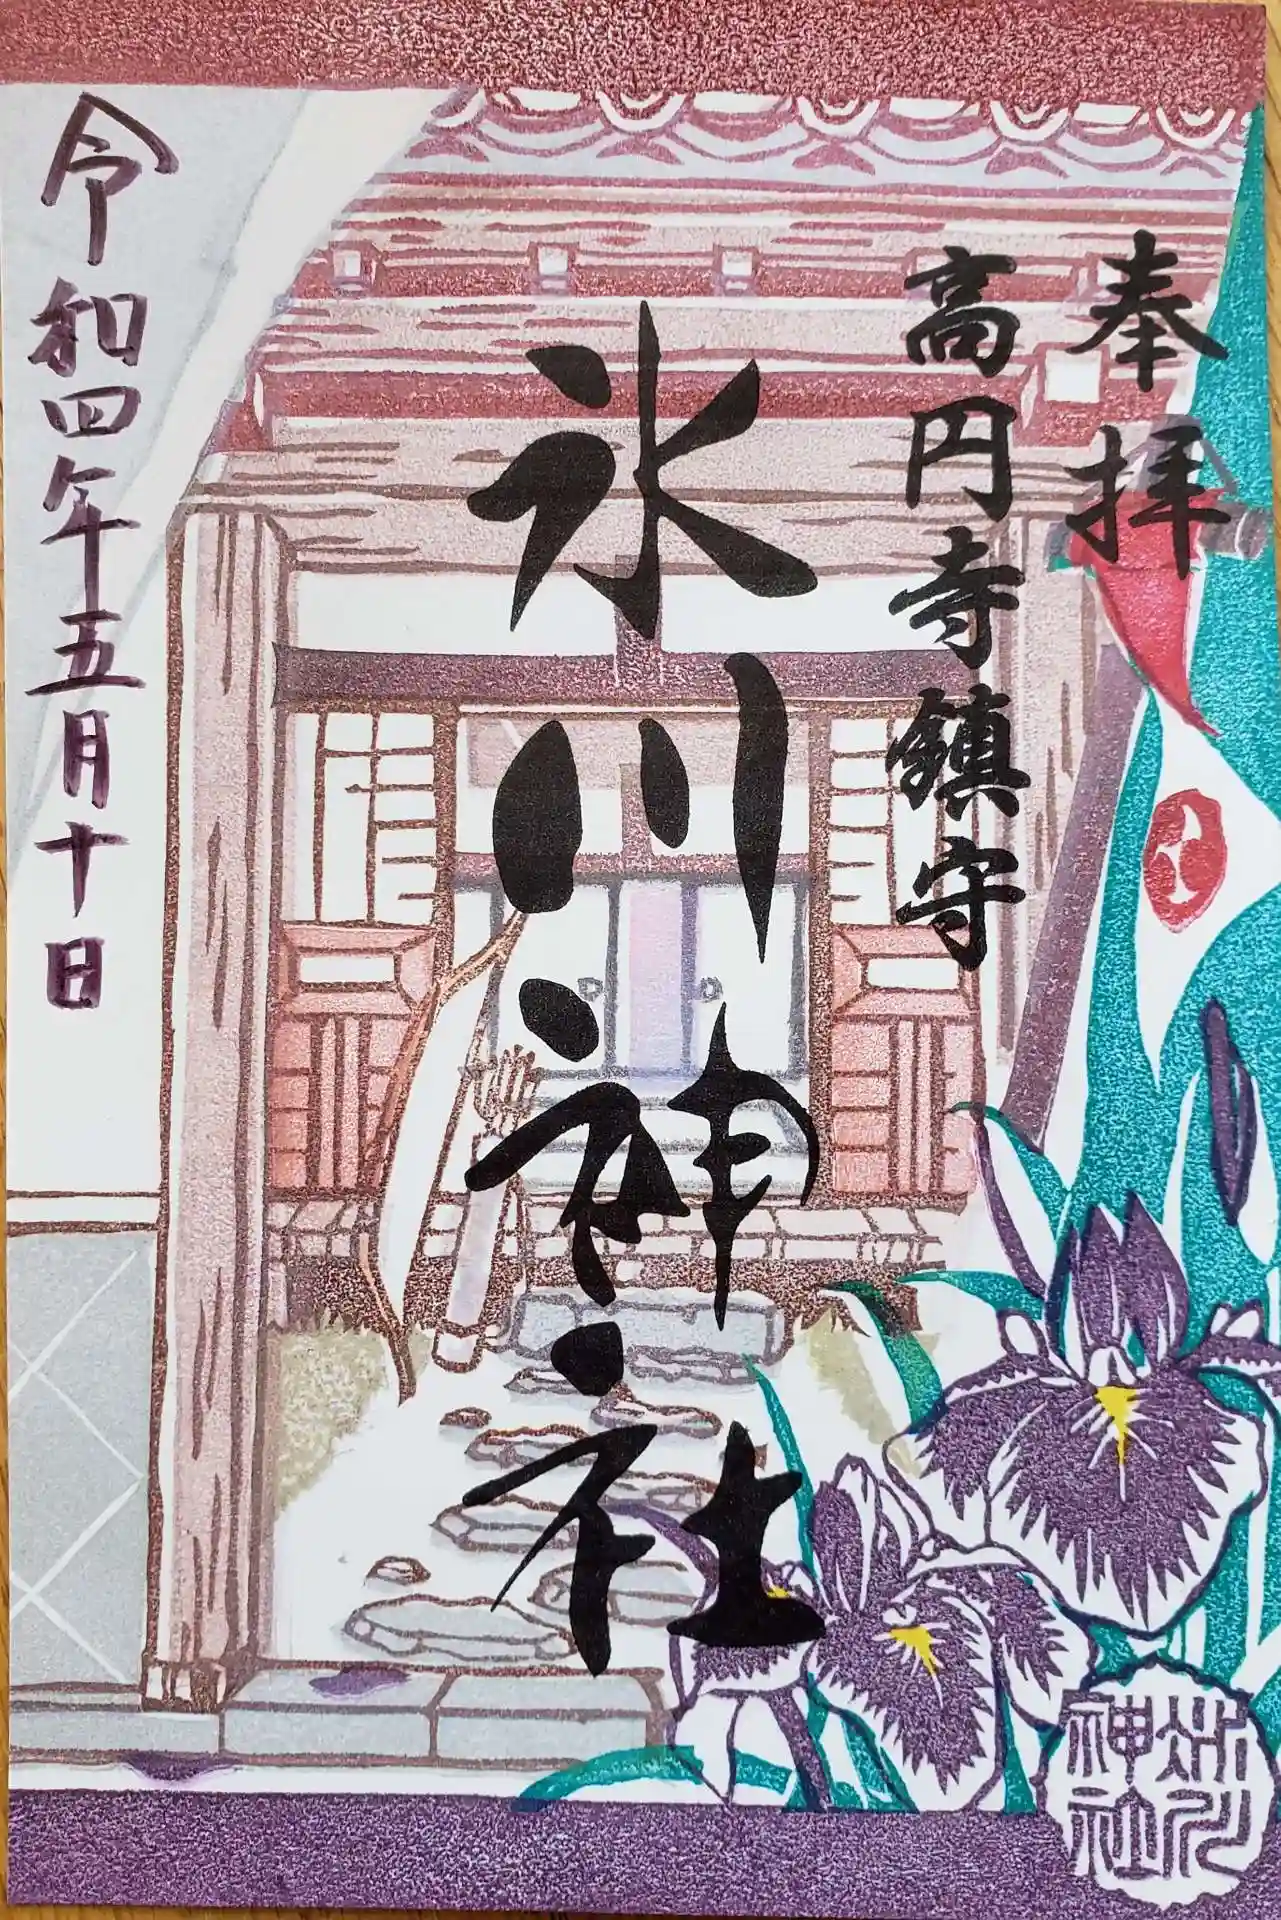 奉拝
高円寺鎮守
氷川神社
令和四年五月十日
氷川
神社